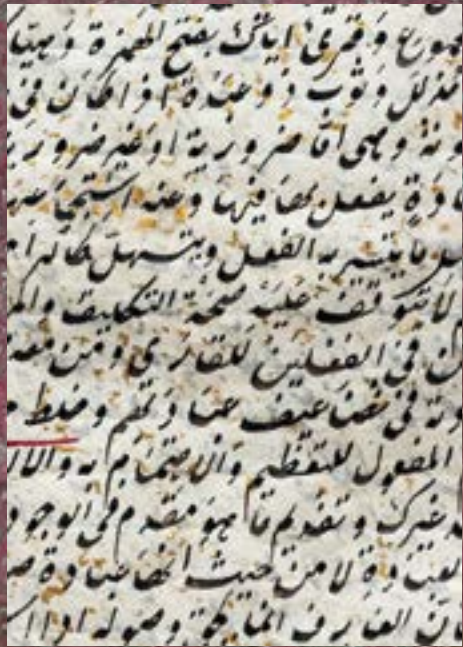 مجموع وقرئ اياك بفتح الهمزة وهياك
مذلل وثوب ذو عبدة اذا كان في
ونة وهى اما ضرورية او غير ضرورية
مادة يفعل بها فيها وعند استجماعها
ما يتيسر به الفعل ويتسهل كالرا
لا يتوقف عليه صحة التكليف والمر
في الفعلين للقارئ ومن معه
في تضاعيف عبادتهم وخلط
المفعول للتعظيم والاهتمام به والدلا
غيرك وتقديم ما هو مقدم في الوجود
العبادة لا من حيث انها عبادة ص
ان العارف انما يحق وصوله اذا ا